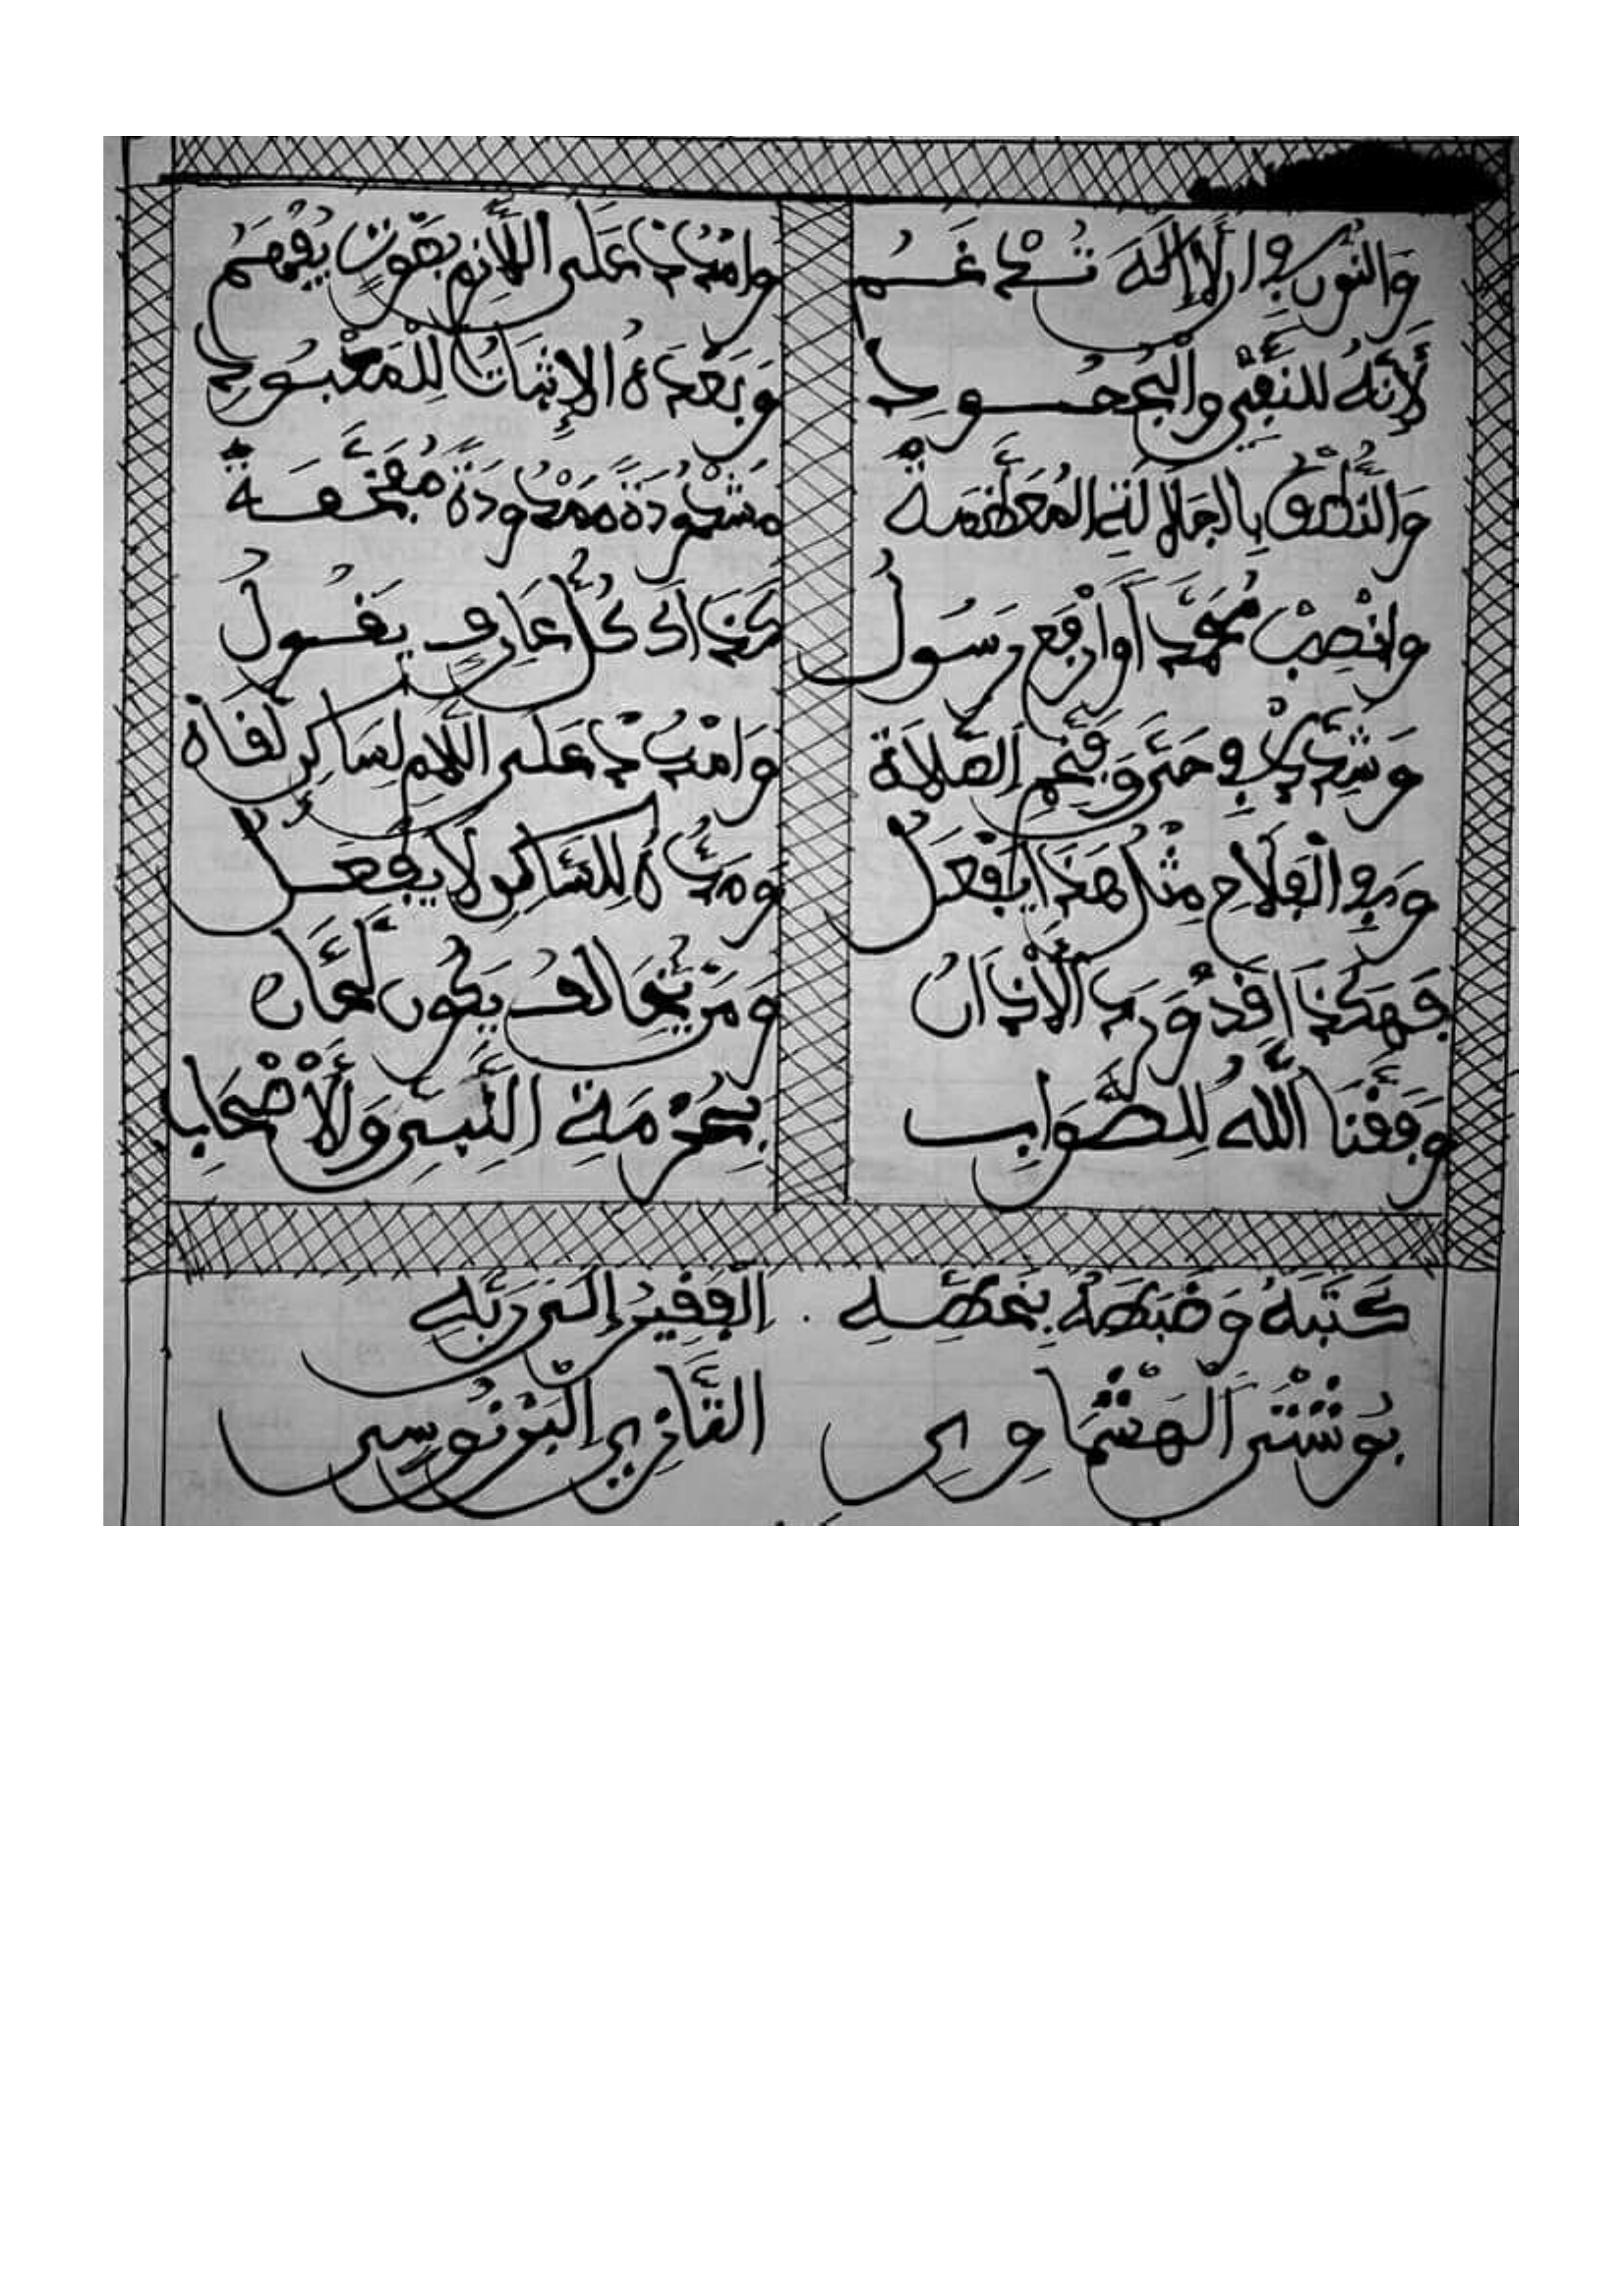 وَالنُّونُ فِي أَن لاَ إِلَهَ تُدْغَمُ وَامْدُدْ عَلَى اللاَّمِ بِصَوْتٍ يُفْهَمُ
لأَنَّهُ لِلنَّفْيِ وَالْجُحُودِ وَبَعْدَهُ الإِثْبَاتُ لِلْمَعْبُودِ
وَالنُّطْقُ بِالْجَلاَلَةِ الْمُعَظَّمَةْ مَشْدُودَةً مَمْدُودَةً مُفَخَّمَةْ
وَانْصِبْ مُحَمَّداً وَارْفَعْ رَسُولُ كَذَاكَ كُلُّ عَارِفٍ يَقُولُ
وَشَدِّدْ فِي حَيَّ وَفَخِّمِ الصَّلاَةْ وَامْدُدْ عَلَى اللاَّمِ لِسَاكِنٍ لَقَاهْ
وَفِي الْفَلاَحِ مِثْلُ هَذَا يُفْعَلُ وَمَدُّهُ لِلسَّاكِنِ لاَ يُفْعَلُ
فَهَكَذَا قَدْ وَرَدَ الأَذَانُ وَمَنْ يُخَالِفْ يَكُونُ لَحَّانُ
وَفَّقَنَا اللَّهُ لِلصَّوَابِ بِحُرْمَةِ النَّبِيِّ وَالأَصْحَابِ
كَتَبَهُ وَضَبَطَهُ بِخَطِّهِ . الْفَقِيرُ إِلَى رَبِّهِ
بُوشْتَى الْهَشْمَاوِي التَّازِي الْبَرْنُوسِي